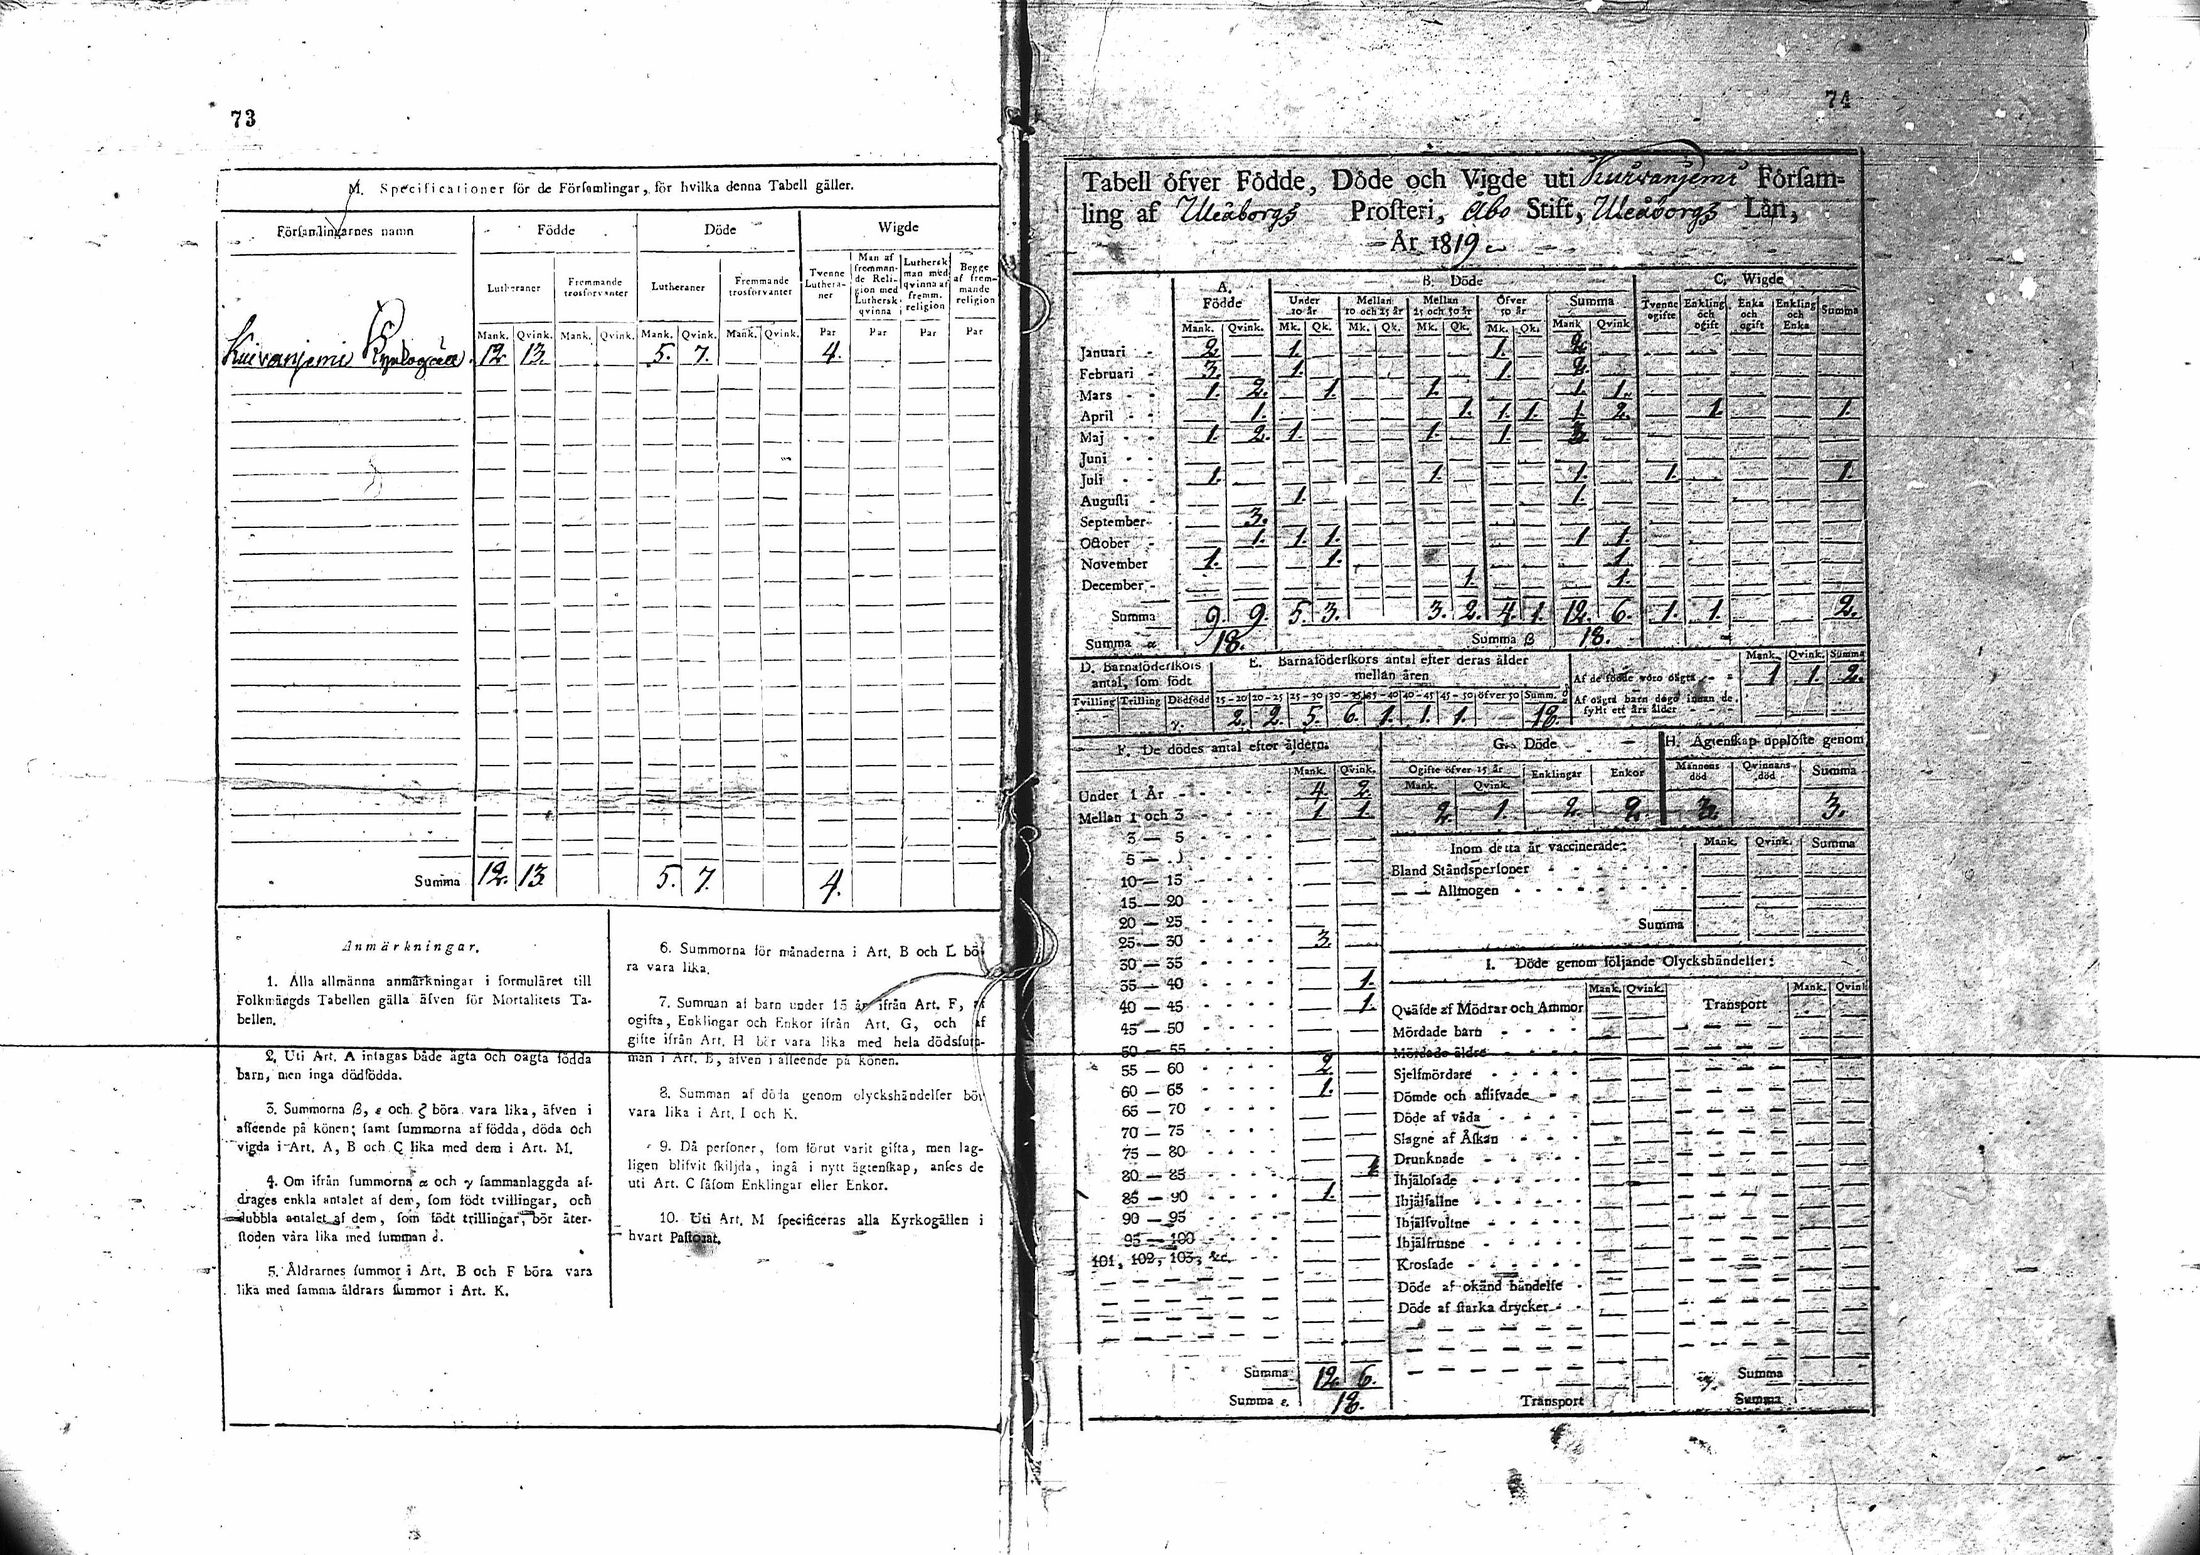 73
M. Specificationer för de Församlingar, för hvilka denna Tabell gäller.
Församlingarnes namn Födde Döde Wigde
Lutheraner Fremmande trosförvanter Lutheraner Fremmande trosförvanter Tvenne Lutheraner Man af fremmande Religion med Luthersk qvinna Luthersk man med qvinna af fremm. religion Begge af fremmande religion
Mank. Qvink. Mank. Qvink. Mank. Qvink. Mank. Qvink. Par Par Par Par
Kuivanjemi 12. 13. 5. 7. 4.
Summa 12. 13. 5. 7. 4.
Anmärkningar.
1. Alla allmänna anmärkningar i formuläret till
Folkmängds Tabellen gälla äfven för Mortalitets Ta-
bellen.
2. Uti Art. A intagas både ägta och oägta födda
barn, men inga dödfödda.
3. Summorna β, ε och ζ böra vara lika, äfven i
afseende på könen; samt summorna af födda, döda och
vigda i Art. A, B och C lika med dem i Art. M.
4. Om ifrån summorna α och γ sammanlaggda af-
drages enkla antalet af dem, som födt tvillingar, och
dubbla antalet af dem, som födt trillingar, bör åter-
stoden vara lika med summan δ.
5. Åldrarnes summor i Art. B och F böra vara
lika med samma åldrars summor i Art. K.
6. Summorna för månaderna i Art. B och L bö-
ra vara lika.
7. Summan af barn under 15 år ifrån Art. F, af
ogifta, Enklingar och Enkor ifrån Art. G, och af
gifte ifrån Art. H bör vara lika med hela dödssum-
man i Art. B, äfven i afseende på könen.
8. Summan af döda genom olyckshändelser bör
vara lika i Art. I och K.
9. Då personer, som förut varit gifta, men lag-
ligen blifvit skiljda, ingå i nytt ägtenskap, anses de
uti Art. C såsom Enklingar eller Enkor.
10. Uti Art. M specificeras alla Kyrkogällen i
hvart Pastorat.
74
Tabell öfver Födde, Döde och Vigde uti Kuivanjemi Församling
ling af Uleåborgs Prosteri, Åbo Stift, Uleåborgs Län,
År 1819
A. Födde B. Döde C. Wigde
Under 10 år Mellan 10 och 25 år Mellan 25 och 50 år Öfver 50 år Summa Tvenne ogifte Enkling och ogift Enka och ogift Enkling och Enka Summa
Mank. Qvink. Mk. Qk. Mk. Qk. Mk. Qk. Mk. Qk. Mank Qvink
Januari 2. 1. 1. 2.
Februari 3. 1. 1. 2.
Mars 1. 2. 1. 1. 1. 1.
April 1. 1. 1. 1. 1. 2. 1. 1.
Maj 1. 2. 1. 1. 1. 3.
Juni
Juli 1. 1. 1. 1. 1.
Augusti 1. 1.
September 3.
October 1. 1. 1. 1. 1.
November 1. 1. 1.
December 1. 1.
Summa 9. 9. 5. 3. 3. 2. 4. 1. 12. 6. 1. 1. 2.
Summa α 18. Summa β 18.
D. Barnaföderskors antal, som födt
Tvilling Trilling Dödfödd
γ.
E. Barnaföderskors antal efter deras ålder
mellan åren
15-20 20-25 25-30 30-35 35-40 40-45 45-50 öfver 50 Summ. δ
2. 2. 5. 6. 1. 1. 1. 18.
Mank. Qvink. Summa
Af de födde voro oägta 1 1. 2.
Af oägta barn dögo innan de
fyllt ett års ålder
F. De dödes antal efter åldern.
Mank. Qvink.
Under 1 År 4 2.
Mellan 1 och 3 1 1.
3 — 5
5 —
10 — 15
15 — 20
20 — 25
25 — 30 3.
30 — 35
35 — 40 1.
40 — 45 1.
45 — 50
50 — 55
55 — 60 2.
60 — 65 1.
65 — 70
70 — 75
75 — 80
80 — 85 1
85 — 90 1.
90 — 95
95 — 100
101, 102, 103, &c.
Summa 12. 6.
Summa ε. 18.
G. Döde
Ogifte öfver 15 år Enklingar Enkor
Mank. Qvink.
2. 1. 2. 2.
H. Ägtenskap upplöste genom
Mannens död Qvinnans död Summa
3. 3.
Inom detta år vaccinerade: Mank. Qvink. Summa
Bland Ståndspersoner
— — Allmogen
Summa
I. Döde genom följande Olyckshändelser:
Mank. Qvink. Mank. Qvink
Qväfde af Mödrar och Ammor Transport
Mördade barn
Mördade äldre
Sjelfmördare
Dömde och aflifvade
Döde af våda
Slagne af Åskan
Drunknade
Ihjälosade
Ihjälfallne
Ihjälfrusne
Krossade
Döde af okänd händelse
Döde af starka drycker
Summa
Transport Summa